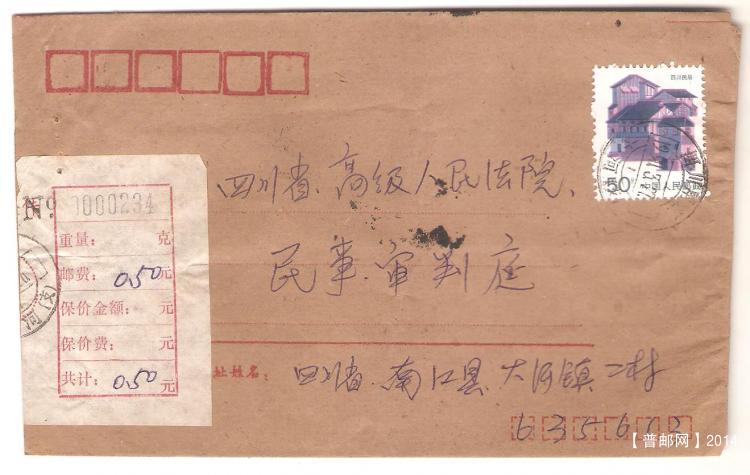 四川民居
50 中国人民邮政
四川省高级人民法院、
民事审判庭
№ 0000234
重量： 克
邮费： 0.50 元
保价金额： 元
保价费： 元
共计： 0.50 元
址姓名： 四川省南江县大河镇二村
635612
【普邮网】2014